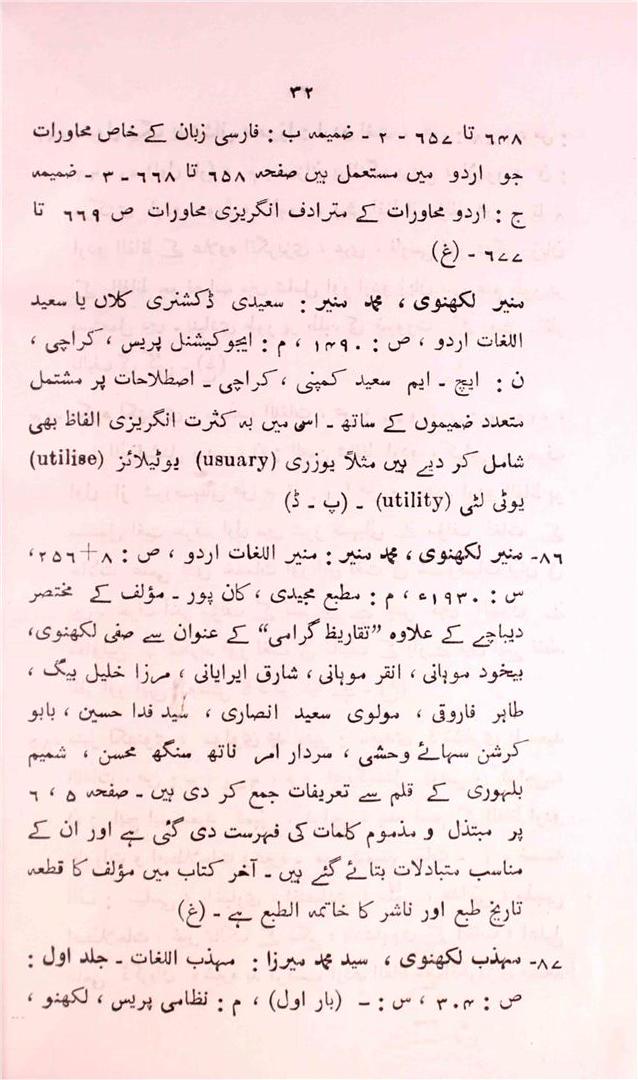 ۳۲
۶۴۸ تا ۶۵۷ - ۲ - ضمیمہ ب : فارسی زبان کے خاص محاورات
جو اردو میں مستعمل ہیں صفحہ ۶۵۸ تا ۶۶۸ - ۳ - ضمیمہ
ج : اردو محاورات کے مترادف انگریزی محاورات ص ۶۶۹ تا
۶۷۷ - (غ)
منیر لکھنوی ، محمد منیر : سعیدی ڈکشنری کلاں یا سعید
اللغات اردو ، ص : ۱۴۹۰ ، م : ایجوکیشنل پریس ، کراچی ،
ن : ایچ - ایم سعید کمپنی ، کراچی - اصطلاحات پر مشتمل
متعدد ضمیموں کے ساتھ - اس میں بہ کثرت انگریزی الفاظ بھی
شامل کر دیے ہیں مثلاً یوزری (usuary) یوٹیلائز (utilise)
یوٹی لٹی (utility) - (پ - ڈ)
۸۶- منیر لکھنوی ، محمد منیر : منیر اللغات اردو ، ص : ۸+۲۵۶،
س : ۱۹۳۰ء ، م : مطبع مجیدی ، کان پور - مؤلف کے مختصر
دیباچے کے علاوہ ”تقاریظ گرامی“ کے عنوان سے صفی لکھنوی،
بیخود موہانی ، انقر موہانی ، شارق ایرایانی ، مرزا خلیل بیگ ،
طاہر فاروقی ، مولوی سعید انصاری ، سید فدا حسین ، بابو
کرشن سہائے وحشی ، سردار امر ناتھ سنگھ محسن ، شمیم
بلہوری کے قلم سے تعریفات جمع کر دی ہیں - صفحہ ۵ ، ۶
پر مبتذل و مذموم کلمات کی فہرست دی گئی ہے اور ان کے
مناسب متبادلات بتائے گئے ہیں - آخر کتاب میں مؤلف کا قطعہ
تاریخ طبع اور ناشر کا خاتمہ الطبع ہے - (غ)
۸۷- مہذب لکھنوی ، سید محمد میرزا : مہذب اللغات - جلد اول :
ص : ۳۰۴ ، س : - (بار اول) ، م : نظامی پریس ، لکھنو ،